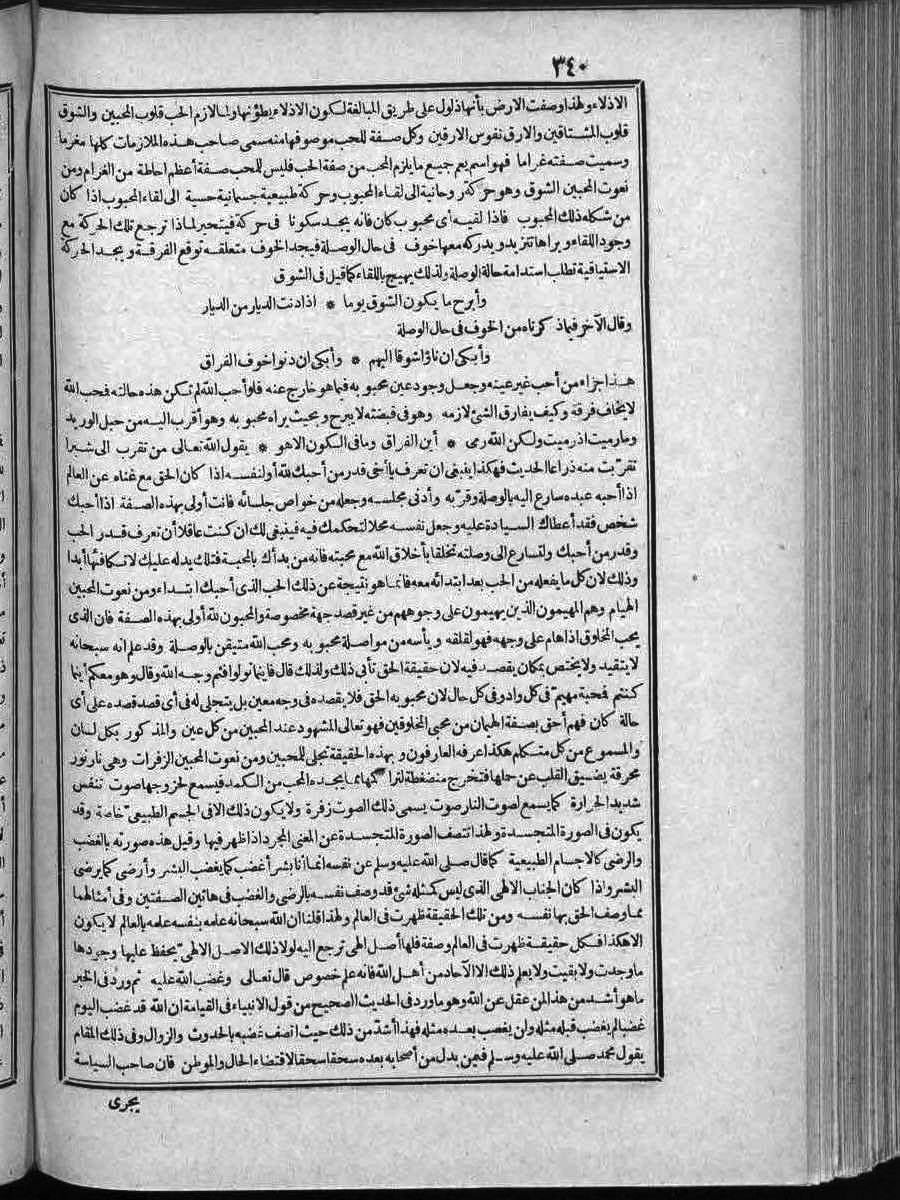 ٣٤٠
الاذلاء ولهذا وصفت الارض بأنها ذلول على طريق المبالغة لكون الاذلاء يطؤنها ولما لازم الحب قلوب المحبين والشوق
قلوب المشتاقين والارق نفوس الارقين وكل صفة للحب موصوفها منه سمى صاحب هذه الملازمات كلها مغرما
وسميت صفته غراما فهو اسم يعم جميع ما يلزم المحب من صفة الحب فليس للمحب صفة أعظم احاطة من الغرام ومن
نعوت المحبين الشوق وهو حركة روحانية الى لقاء المحبوب وحركة طبيعية جسمانية حسية الى لقاء المحبوب اذا كان
من شكله ذلك المحبوب فاذا لقيه أى محبوب كان فانه يجد سكونا فى حركة فيتحير لماذا ترجع تلك الحركة مع
وجود اللقاء ويراها تتزيد ويدركه معها خوف فى حال الوصلة فيجد الخوف متعلقه توقع الفرقة ويجد الحركة
الاشتياقية تطلب استدامة حالة الوصلة ولذلك يهيج باللقاء كما قيل فى الشوق
وأبرح ما يكون الشوق يوما * اذا دنت الديار من الديار
وقال الآخر فيما ذكرناه من الخوف فى حال الوصلة
وأبكى ان نأوا شوقا اليهم * وأبكى ان دنوا خوف الفراق
هذا جزاء من أحب غير عينه وجعل وجود عين محبوبه فيما هو خارج عنه فلو أحب الله لم تكن هذه حالته فمحب الله
لا يخاف فرقة وكيف يفارق الشئ لازمه وهو فى قبضته لا يبرح وبحيث يراه محبوبه وهو أقرب اليه من حبل الوريد
وما رميت اذ رميت ولكن الله رمى * أين الفراق وما فى الكون الا هو * يقول الله تعالى من تقرب الى شبرا
تقربت منه ذراعا الحديث فهكذا ينبغى ان تعرف يا أخى قدر من أحبك لله أو لنفسه اذا كان الحق مع غناه عن العالم
اذا أحبه عبده سارع اليه بالوصلة وقربه وأدنى مجلسه وجعله من خواص جلسائه فانت أولى بهذه الصفة اذا أحبك
شخص فقد أعطاك السيادة عليه وجعل نفسه محلا لتحكمك فيه فينبغى لك ان كنت عاقلا أن تعرف قدر الحب
وقدر من أحبك ولتسارع الى وصلته تخلقا بأخلاق الله مع محبته فانه من بدأك بالمحبة فتلك يد له عليك لا تكافئها أبدا
وذلك لان كل ما يفعله من الحب بعد ابتدائه معه فانما هو نتيجة عن ذلك الحب الذى أحبك ابتداء ومن نعوت المحبين
الهيام وهم المهيمون الذين يهيمون على وجوههم من غير قصد جهة مخصوصة والمحبون لله أولى بهذه الصفة فان الذى
يحب المخلوق اذا هام على وجهه فهو لقلقه ويأسه من مواصلة محبوبه ومحب الله متيقن بالوصلة وقد علم انه سبحانه
لا يتقيد ولا يختص بمكان يقصد فيه لان حقيقة الحق تأبى ذلك ولذلك قال فاينما تولوا فثم وجه الله وقال وهو معكم أينما
كنتم فمحبه مهيم فى كل واد وفى كل حال لان محبوبه الحق فلا يقصده فى وجه معين بل يتجلى له فى أى قصد قصده على أى
حالة كان فهم أحق بصفة الهيمان من محبى المخلوقين فهو تعالى المشهود عند المحبين من كل عين والمذكور بكل لسان
والمسموع من كل متكلم هكذا عرفه العارفون وبهذه الحقيقة تجلى للمحبين ومن نعوت المحبين الزفرات وهى نار نور
محرقة يضيق القلب عن حملها فتخرج منضغطة لتراكمها مما يجده المحب من الكمد فيسمع لخروجها صوت تنفس
شديد الحرارة كما يسمع لصوت النار صوت يسمى ذلك الصوت زفرة ولا يكون ذلك الا فى الجسم الطبيعى خاصة وقد
يكون فى الصورة المتجسدة ولهذا تتصف الصورة المتجسدة عن المعنى المجرد اذا ظهر فيها وقيل هذه صورته بالغضب
والرضى كالاجسام الطبيعية كما قال صلى الله عليه وسلم عن نفسه انما أنا بشر أغضب كما يغضب البشر وأرضى كما يرضى
البشر واذا كان الجناب الالهى الذى ليس كمثله شئ قد وصف نفسه بالرضى والغضب فى هاتين الصفتين وفى أمثالهما
مما وصف الحق بها نفسه ومن تلك الحقيقة ظهرت فى العالم ولهذا قلنا ان الله سبحانه علمه بنفسه علمه بالعالم لا يكون
الا هكذا فكل حقيقة ظهرت فى العالم وصفة فلها أصل الهى ترجع اليه لولا ذلك الاصل الالهى يحفظ عليها وجودها
ما وجدت ولا بقيت ولا يعلم ذلك الا الآحاد من أهل الله فانه علم خصوص قال تعالى وغضب الله عليه ثم ورد فى الخبر
ما هو أشد من هذا لمن عقل عن الله وهو ما ورد فى الحديث الصحيح من قول الانبياء فى القيامة ان الله قد غضب اليوم
غضبا لم يغضب قبله مثله ولن يغضب بعده مثله فهذا أشد من ذلك حيث اتصف غضبه بالحدوث والزوال وفى ذلك المقام
يقول محمد صلى الله عليه وسلم فيمن بدل من أصحابه بعده سحقا سحقا لاقتضاء الحال والموطن فان صاحب السياسة
يجرى